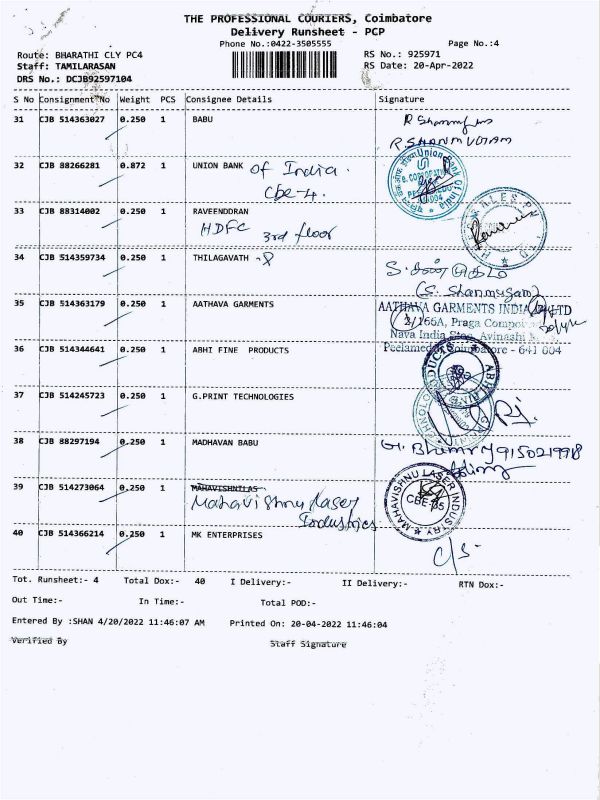 THE PROFESSIONAL COURIERS, Coimbatore
Delivery Runsheet - PCP
Phone No.:0422-3505555
Page No.:4
Route: BHARATHI CLY PC4
RS No.: 925971
Staff: TAMILARASAN
RS Date: 20-Apr-2022
DRS No.: DCJB92597104
S No Consignment No Weight PCS Consignee Details Signature
31 CJB 514363027 0.250 1 BABU
R.SHANMUGAM
32 CJB 88266281 0.872 1 UNION BANK of India.
Cbe-4.
33 CJB 88314002 0.250 1 RAVEENDDRAN
HDFC 3rd floor
34 CJB 514359734 0.250 1 THILAGAVATH
(S. Shanmugam)
35 CJB 514363179 0.250 1 AATHAVA GARMENTS AATHAVA GARMENTS INDIA LTD
2/166A, Praga
Nava India Stop, Avinashi
36 CJB 514344641 0.250 1 ABHI FINE PRODUCTS Peelamedu, Coimbatore - 641 004
37 CJB 514245723 0.250 1 G.PRINT TECHNOLOGIES
38 CJB 88297194 0.250 1 MADHAVAN BABU 9150219918
39 CJB 514273064 0.250 1 MAHAVISHNILAS
Mahavishnu Laser
Industries
MAHAVISHNU LASER INDUSTRY
CBE-35
40 CJB 514366214 0.250 1 MK ENTERPRISES
C/S-
Tot. Runsheet:- 4 Total Dox:- 40 I Delivery:- II Delivery:- RTN Dox:-
Out Time:- In Time:- Total POD:-
Entered By :SHAN 4/20/2022 11:46:07 AM Printed On: 20-04-2022 11:46:04
Verified By Staff Signature